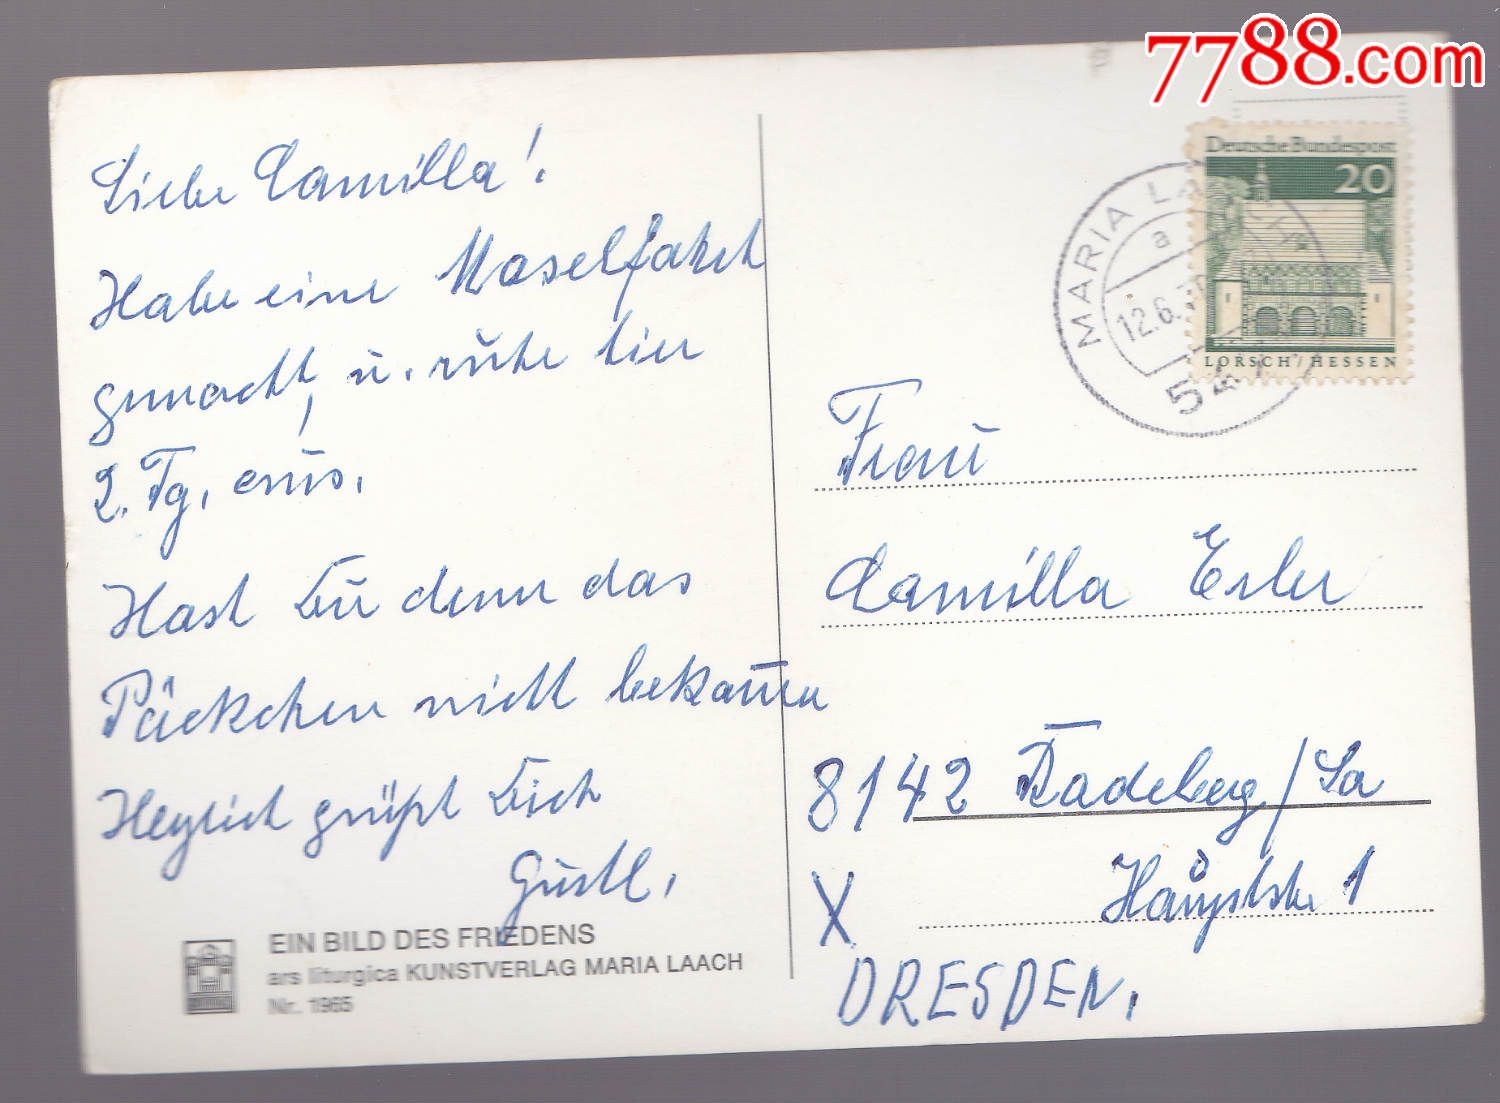 7788.com
Liebe Camilla!
Habe eine Moselfahrt
gemacht, u. ruhe hier
2. Tg. aus.
Hast Du denn das
Päckchen nicht bekommen
Herzlich grüßt Dich
Gustl.
EIN BILD DES FRIEDENS
ars liturgica KUNSTVERLAG MARIA LAACH
Nr. 1965
Deutsche Bundespost
20
LORSCH / HESSEN
MARIA LAACH
a
12.6.
54
Frau
Camilla Erler
8142 Radeberg/Sa
Hauptstr 1
X
DRESDEN.